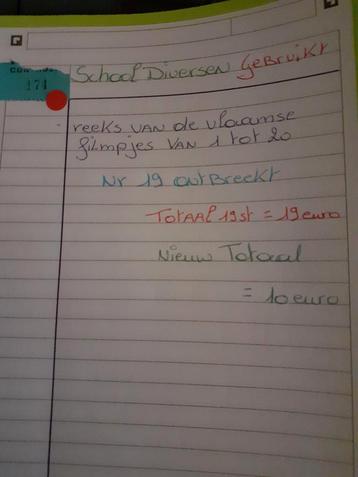 School Diversen Gebruikt
171
reeks van de vlaamse
filmpjes van 1 tot 20
Nr 19 ontbreekt
Totaal 19 st = 19 euro
Nieuw Totaal
= 10 euro